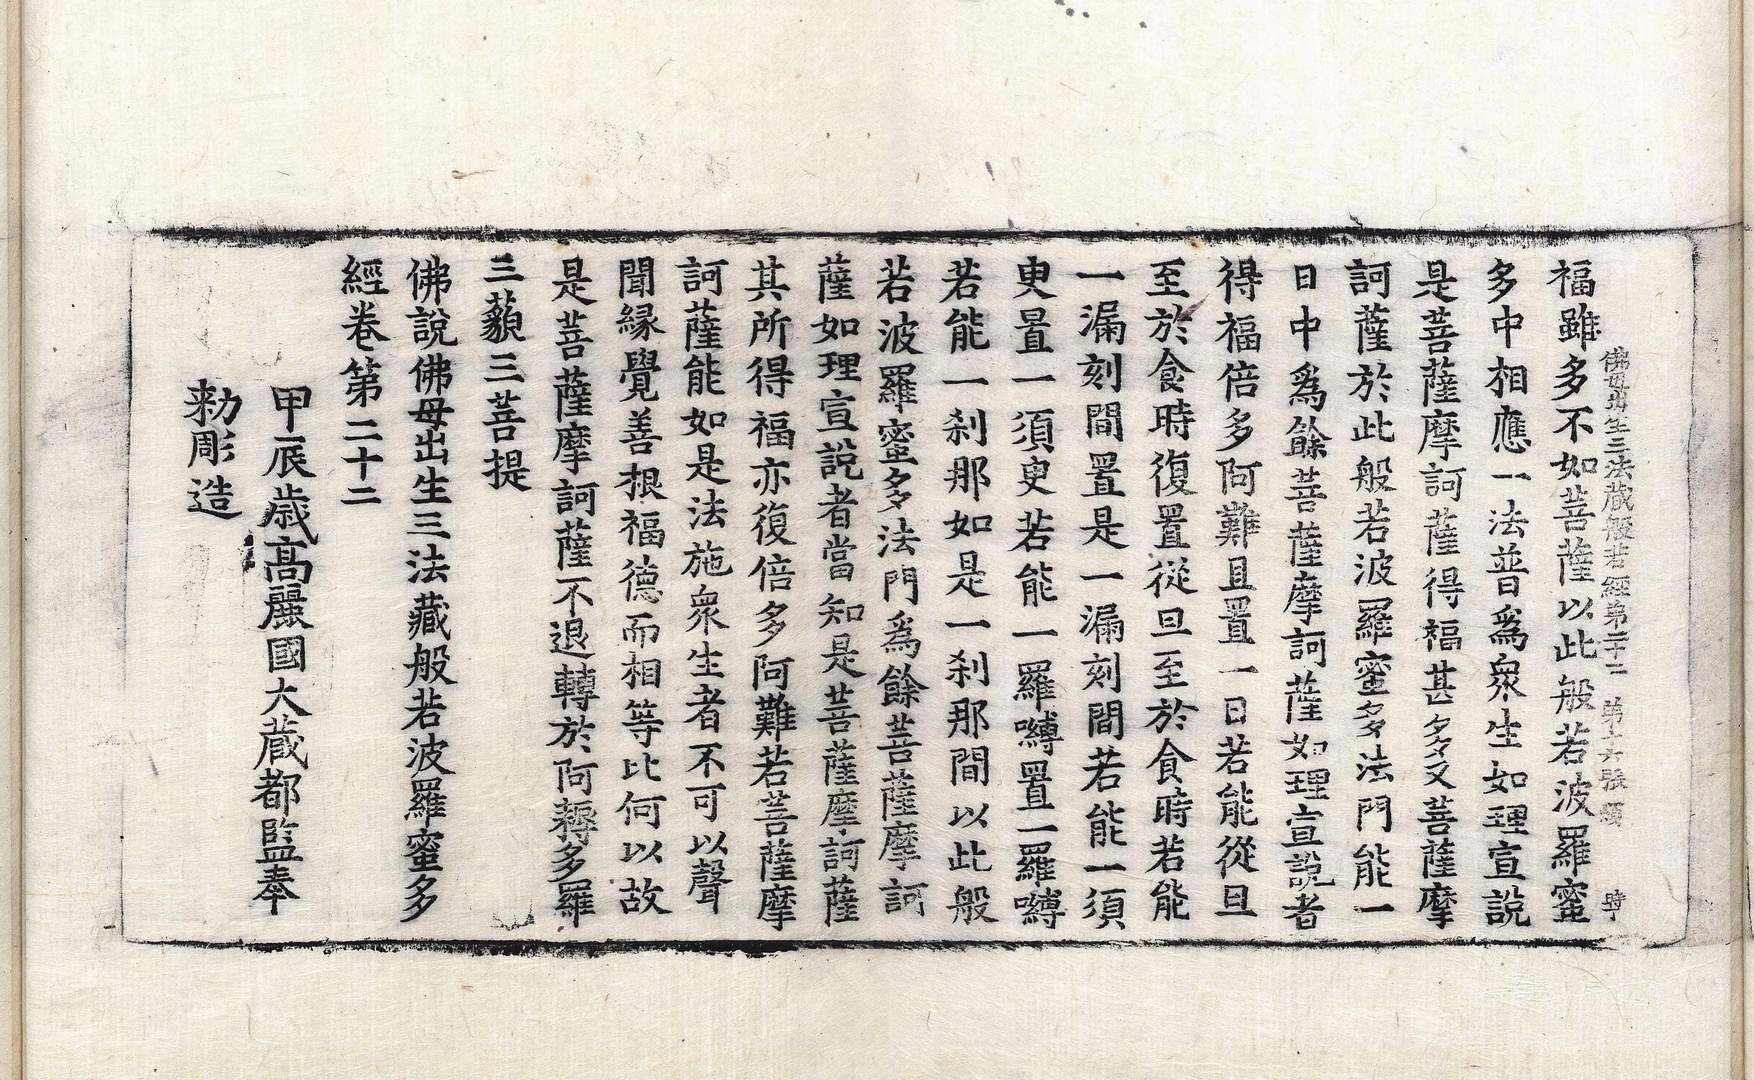 佛母出生三法藏般若經第二十二 第十六張 頌 時
福雖多不如菩薩以此般若波羅蜜
多中相應一法普爲衆生如理宣說
是菩薩摩訶薩得福甚多又菩薩摩
訶薩於此般若波羅蜜多法門能一
日中爲餘菩薩摩訶薩如理宣說者
得福倍多阿難且置一日若能從旦
至於食時復置從旦至於食時若能
一漏刻閒置是一漏刻閒若能一須
臾置一須臾若能一羅嚩置一羅嚩
若能一刹那如是一刹那閒以此般
若波羅蜜多法門爲餘菩薩摩訶
薩如理宣說者當知是菩薩摩訶薩
其所得福亦復倍多阿難若菩薩摩
訶薩能如是法施衆生者不可以聲
聞緣覺善根福德而相等比何以故
是菩薩摩訶薩不退轉於阿耨多羅
三藐三菩提
佛說佛母出生三法藏般若波羅蜜多
經卷第二十二
甲辰歲高麗國大藏都監奉
勅彫造